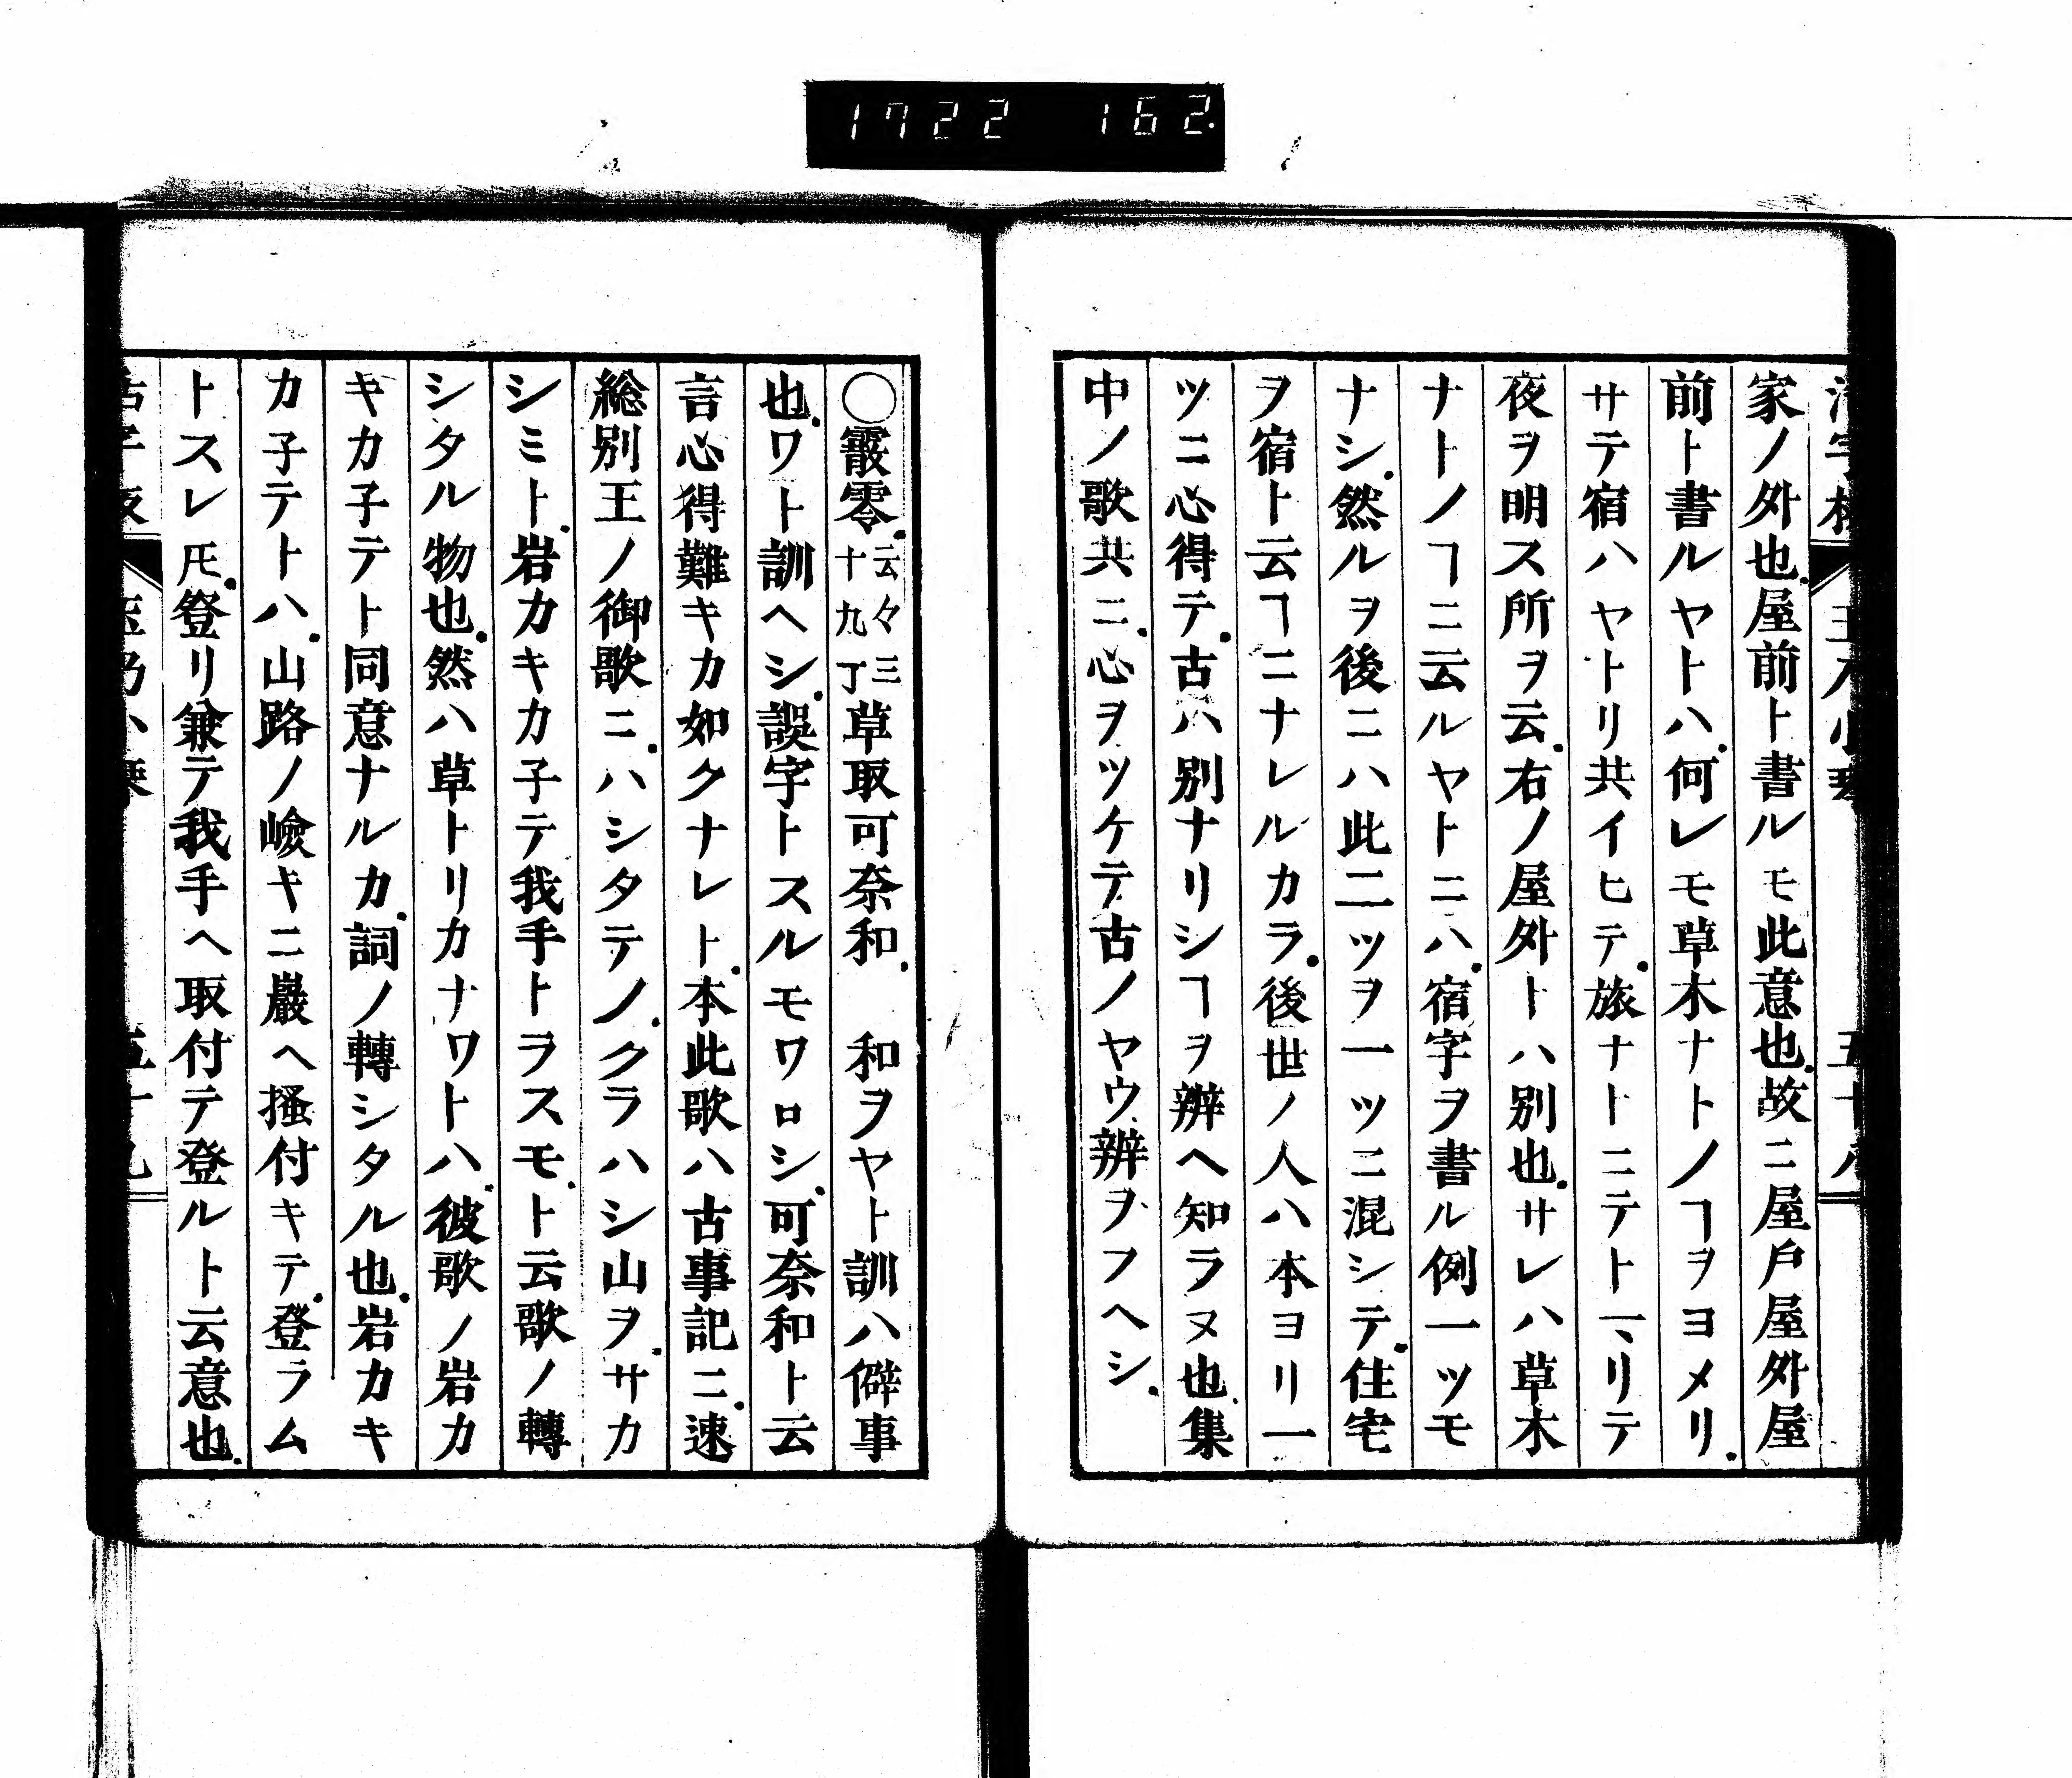 1722 162
家ノ外也屋前ト書ルモ此意也故ニ屋戸屋外屋
前ト書ルヤトハ何レモ草木ナトノヿヲヨメリ
サテ宿ハヤトリ共イヒテ旅ナトニテト一ヽリテ
夜ヲ明ス所ヲ云右ノ屋外トハ別也サレハ草木
ナトノヿニ云ルヤトニハ宿字ヲ書ル例一ツモ
ナシ然ルヲ後ニハ此二ツヲ一ツニ混シテ住宅
ヲ宿ト云ヿニナレルカラ後世ノ人ハ本ヨリ一
ツニ心得テ古ハ別ナリシヿヲ辨ヘ知ラヌ也集
中ノ歌共ニ心ヲツケテ古ノヤウ辨ヲフヘシ
〇霰零云々三十九丁草取可奈和 和ヲヤト訓ハ僻事
也ワト訓ヘシ誤字トスルモワロシ可奈和ト云
言心得難キカ如クナレト本此歌ハ古事記ニ速
総別王ノ御歌ニハシタテノクラハシ山ヲサカ
シミト岩カキカ子テ我手トラスモト云歌ノ轉
シタル物也然ハ草トリカナワトハ彼歌ノ岩カ
キカ子テト同意ナルカ詞ノ轉シタル也岩カキ
カ子テトハ山路ノ嶮キニ巖ヘ搔付キテ登ラム
トスレ𪜈登リ兼テ我手ヘ取付テ登ルト云意也